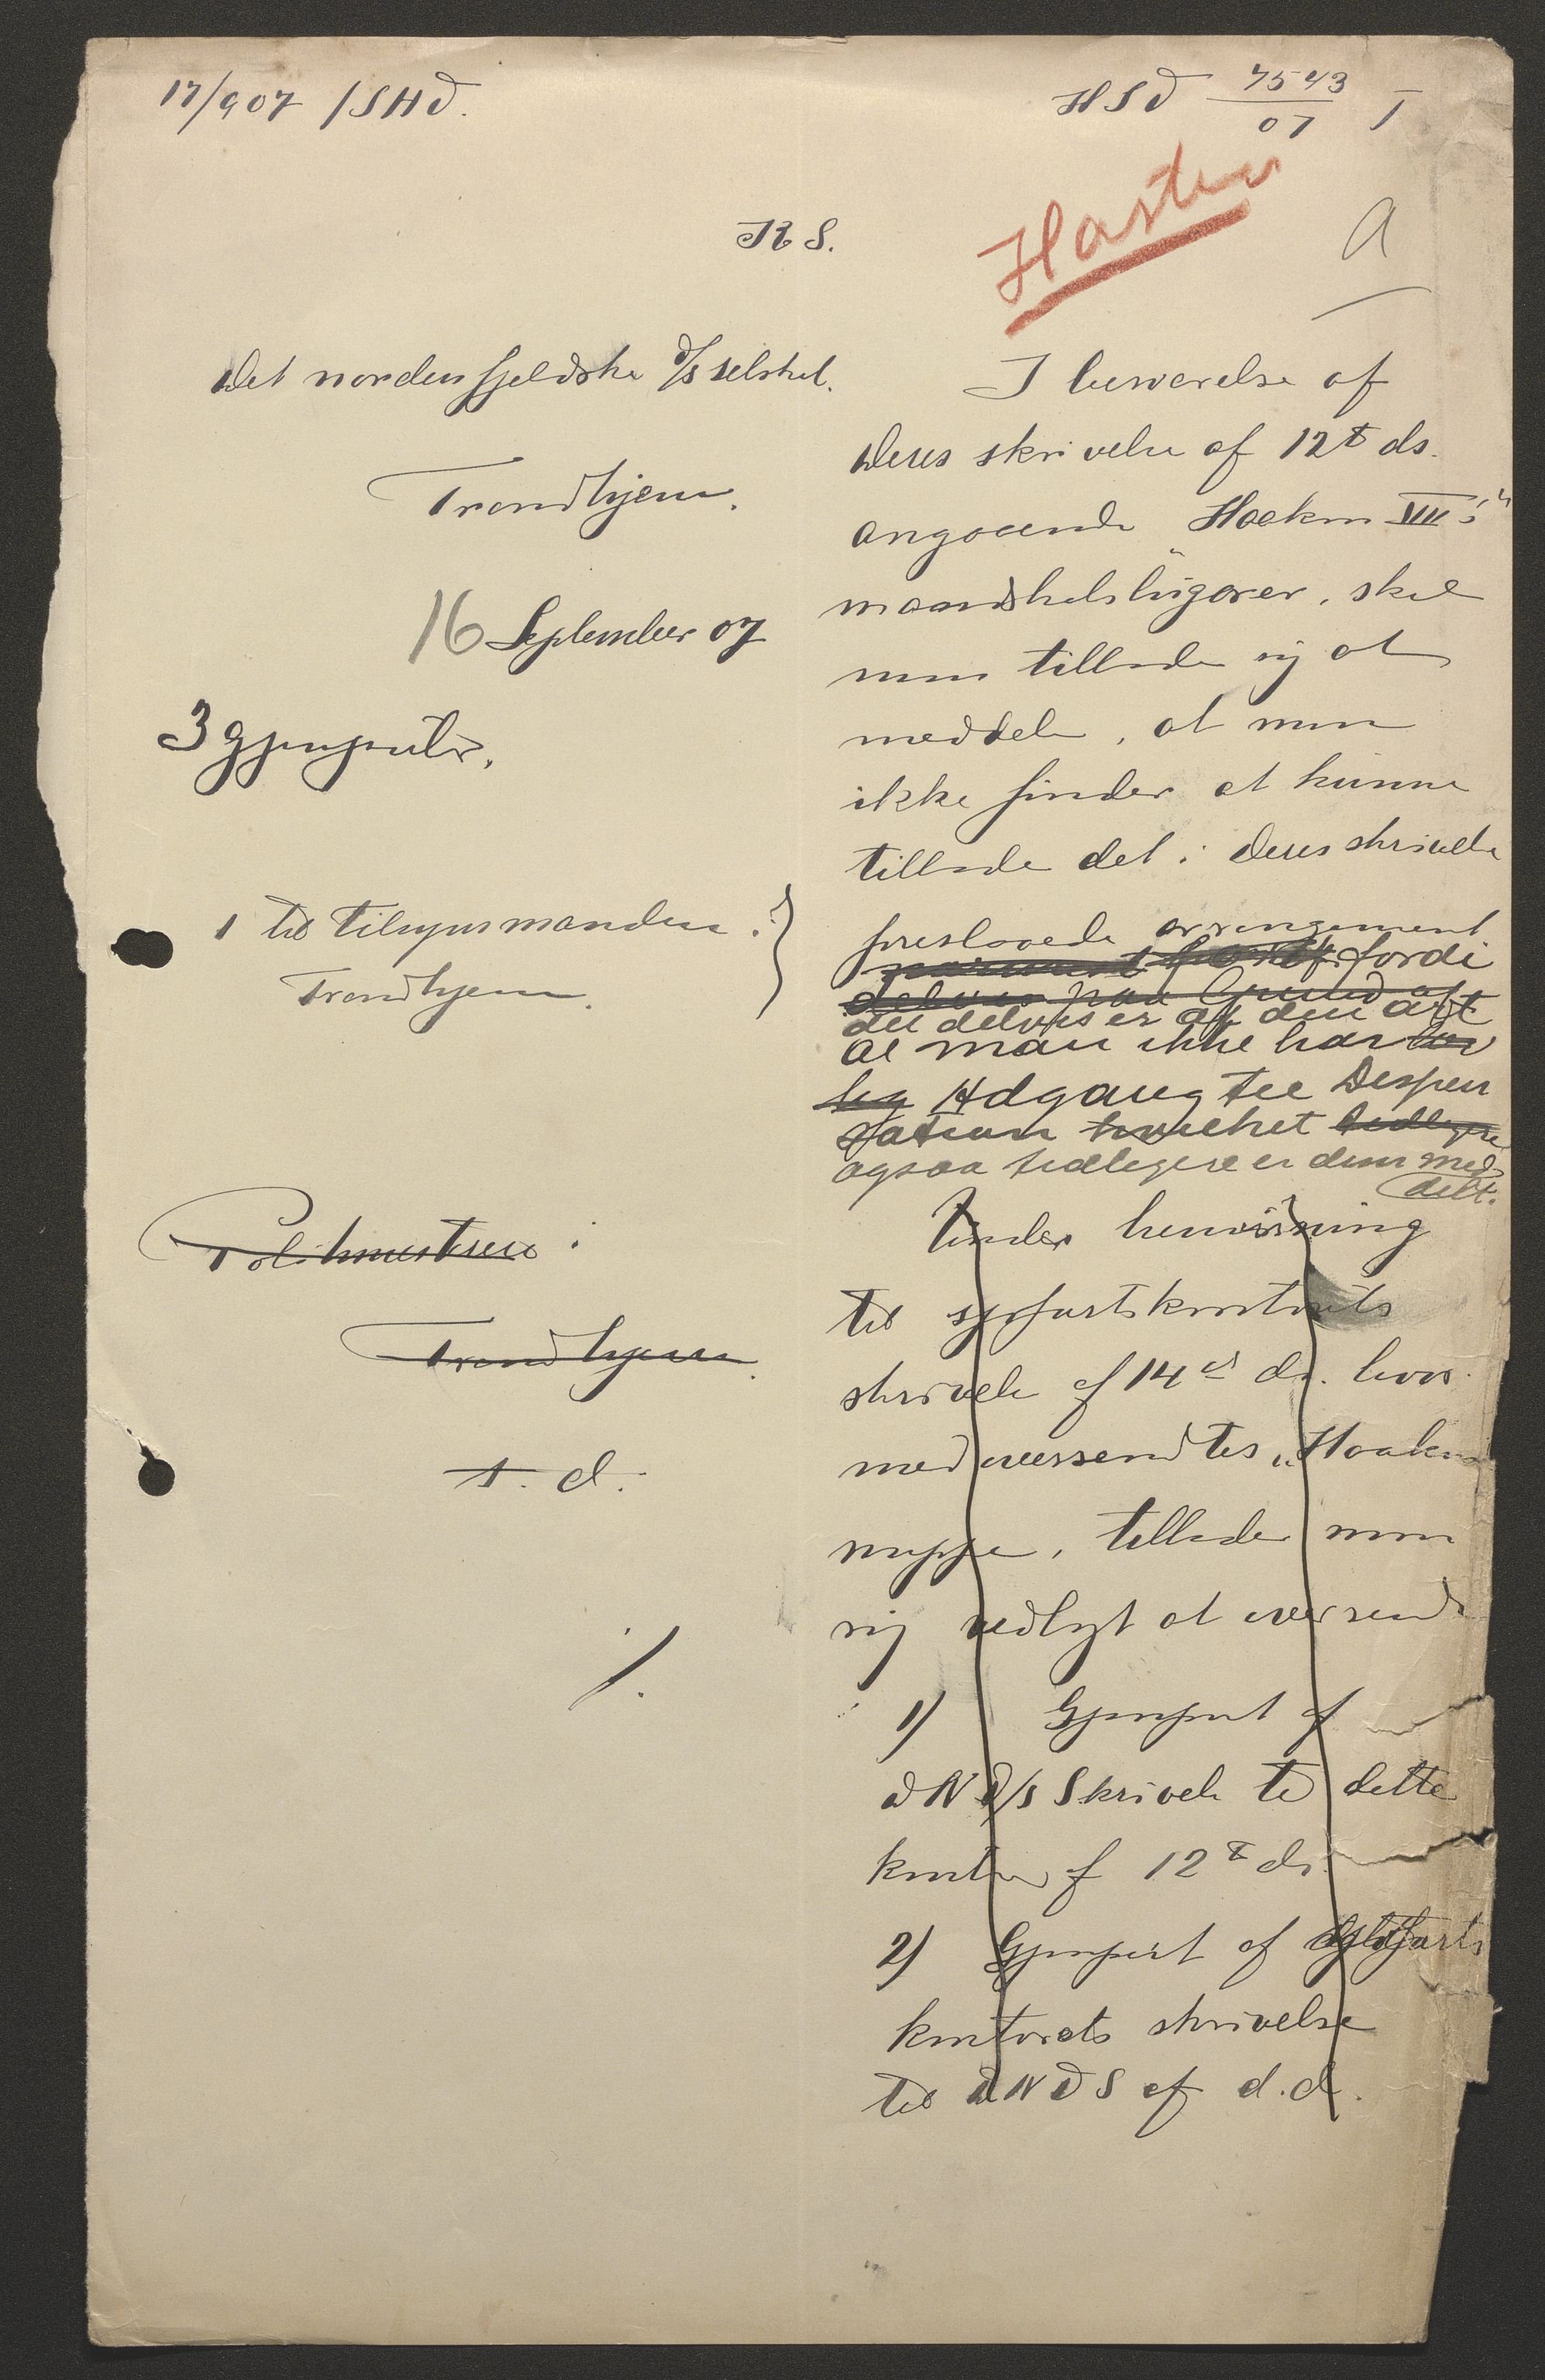 17/907 / SHD.
HSD 7543/07 I
Haster
R S.
a
Det nordenfjeldske D/S selskab.
Trondhjem.
16 September 07
3 gjenparter.
1 til tilsynsmanden i
Trondhjem.
Politimesteren i
Trondhjem.
s. d.
I besvarelse af
Deres skrivelse af 12te ds.
angaaende "Haakon VII's"
mandskabslugarer, skal
man tillade sig at
meddele, at man
ikke finder at kunne
tillade det i Deres skrivelse
foreslaaede arrangement
fordi
delvis paa Grund af
det delvis er af den art
at man ikke har
Adgang til Dispen
sation hvilket tidligere
ogsaa tidligere er dem med-
delt.
Under henvisning
til sjøfartskontorets
skrivelse af 14de ds. hvor
med oversendtes "Haakon
mappe, tillader man
sig vedlagt at oversende
1) Gjenpart af
DND/S Skrivelse til dette
kontor af 12te ds.
2) Gjenpart af sjøfarts
kontorets skrivelse
til DNDS af d.d.